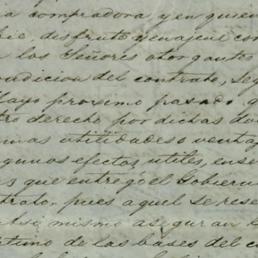 a compradora y en quien
disfrute y enajene con
a los Señores otorgantes
condicion del contrato, seg
Mayo proximo pasado, q
tro derecho por dichas dos
mas utilidades o ventaj
gunos efectos utiles, ense
s que entregó el Gobierno
trato, pues aquel se rese
mismo aseguran
de las bases del co